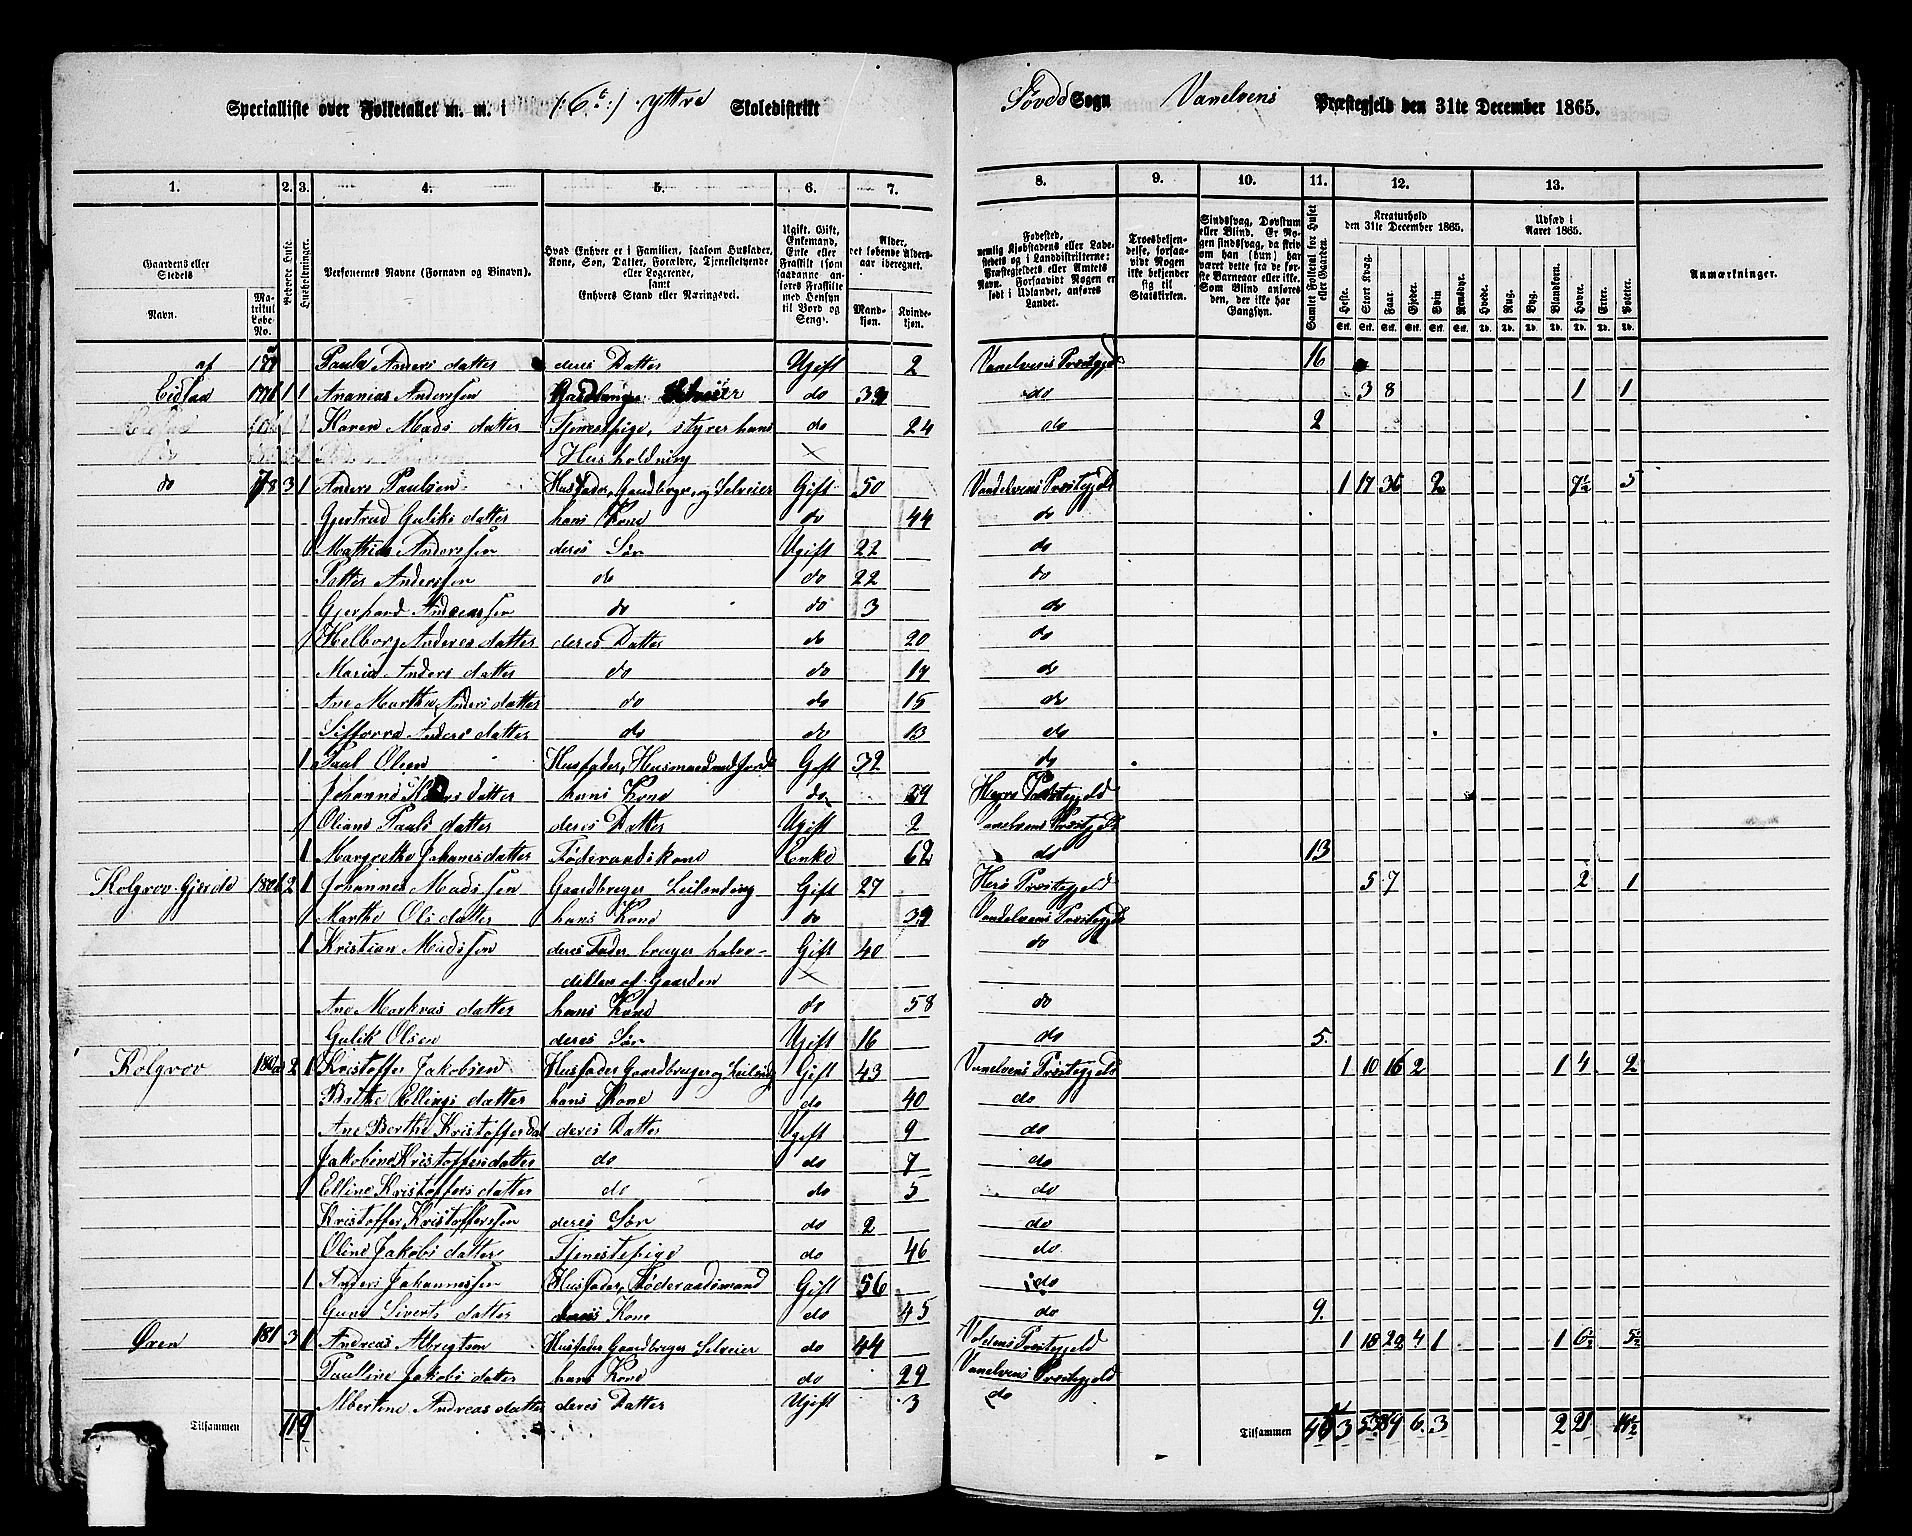 Specialliste over Folketallet m. m. i /:6te:/ yttre Skoledistrikt Søvde Sogn Vanelvens Præstegjeld den 31te December 1865.
1. 2. 3. 4. 5. 6. 7. 8. 9. 10. 11. 12. 13.
Gaardens eller Stedets Navn. Matrikul Løbe-No.
Beboede Huse.
Husholdninger.
Personernes Navne (Fornavn og Binavn).
Hvad Enhver er i Familien, saasom Husfader, Kone, Søn, Datter, Forældre, Tjenestetyende eller Logerende, samt Enhvers Stand eller Næringsvei.
Ugift, Gift, Enkemand, Enke eller Fraskilt
Alder, det løbende Alders-aar iberegnet. Mandkjøn. Kvindekjøn.
Fødested,
Samlet Folketal for Huset eller Gaarden.
Kreaturhold den 31te December 1865. Heste. Stort Kvæg. Faar. Gjeder. Svin. Rensdyr.
Udsæd i Aaret 1865. Hvede. Rug. Byg. Blandkorn. Havre. Erter. Poteter.
Anmærkninger.
af Paula Anders datter deres Datter Ugift 2 Vanelvens Præstegjeld 16
Eidsaa 1 1 Ananias Anderssen do 39 do 3 8 1 1
Karen Mads datter Tjenestpige, styrer hans do 24 do 2
Husholdning
do 3 1 Anders Paulsen Husfader, Gaardbruger og Selveier Gift 50 Vandelvens Præstegjeld 1 17 36 2 7½ 5
Gjertrud Guliks datter hans Kone do 44 do
Mathias Anderssen deres Søn Ugift 22 do
Petter Anderssen do do 22 do
Gjerhard Andreassen do do 3 do
Helborg Anderes datter deres Datter do 20 do
Maria Anders datter do do 17 do
Ane Martha Anders datter do do 15 do
Anders datter do do 13 do
1 Paul Olsen Husfader, Husmand med Jord Gift 32 do
Johanne datter hans Kone do 29 Præstegjeld
Oliane Pauls datter deres Datter Ugift 2 Vanelvens Præstegjeld
1 Margrethe Johannesdatter Føderaadskone Enke 62 do 13
Kolgrov Gjerde 2 1 Johannes Madssen Gaardbruger Leilending Gift 27 Herø Præstegjeld 5 7 2 1
Marthe Ols datter hans Kone do 39 Vandelvens Præstegjeld
1 Kristian Madssen deres Fader bruger halv- Gift 40 do
delen af Gaarden
Ane Markvas datter hans Kone do 58 do
Gulik Olsen deres Søn Ugift 16 do 5.
Kolgrov 2 1 Kristoffer Jakobsen Husfader Gaardbruger og Leilending Gift 43 Vanelvens Præstegjeld 1 10 16 2 1 4 2
Berthe Ellings datter hans Kone do 40 do
Ane Berthe Kristoffersdat deres Datter Ugift 9 do
Jakobine Kristoffers datter do do 7 do
Elline Kristoffers datter do do 5 do
Kristoffer Kristofferssen deres Søn do 2 do
Oline Jakobs datter Tjenestepige do 46 do
1 Anders Johannessen Husfader, Føderaadsmand Gift 56 do
Gune Siverts datter Kone do 45 do 9.
Øren 181 3 1 Andreas Albregtsen Husfader Gaardbruger Selveier do 44 Voldens Præstegjeld 1 18 22 4 1 1 6½ 5½
Pauline Jakobs datter hans Kone do 29 Vanelvens Præstegjeld
Albertine Andreas datter deres Datter Ugift 3 do
Tilsammen 11 9 Tilsammen 3 53 89 6 3 2 21